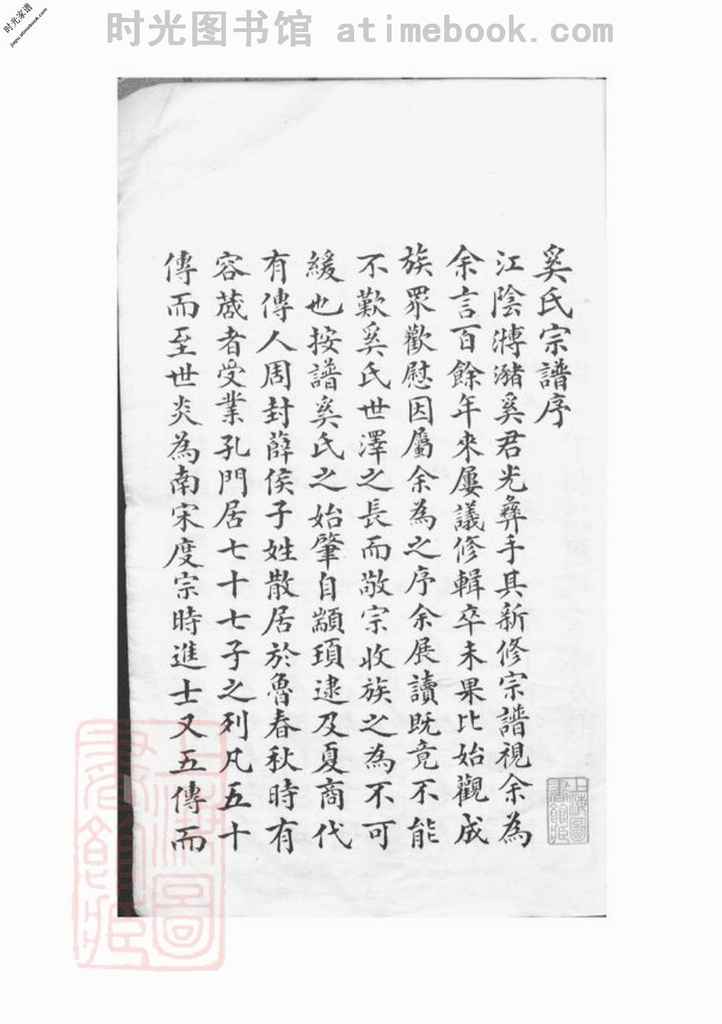 时光图书馆 atimebook.com
时光家谱
jiapu.atimebook.com
奚氏宗譜序
江陰溥瀦奚君光彝手其新修宗譜視余為
余言百餘年來屢議修輯卒未果比始觀成
族眾歡慰因屬余為之序余展讀既竟不能
不歎奚氏世澤之長而敬宗收族之為不可
緩也按譜奚氏之始肇自顓頊逮及夏商代
有傳人周封薛侯子姓散居於魯春秋時有
容蒧者受業孔門居七十七子之列凡五十
傳而至世炎為南宋度宗時進士又五傳而
上海圖書館藏
上海圖書館藏